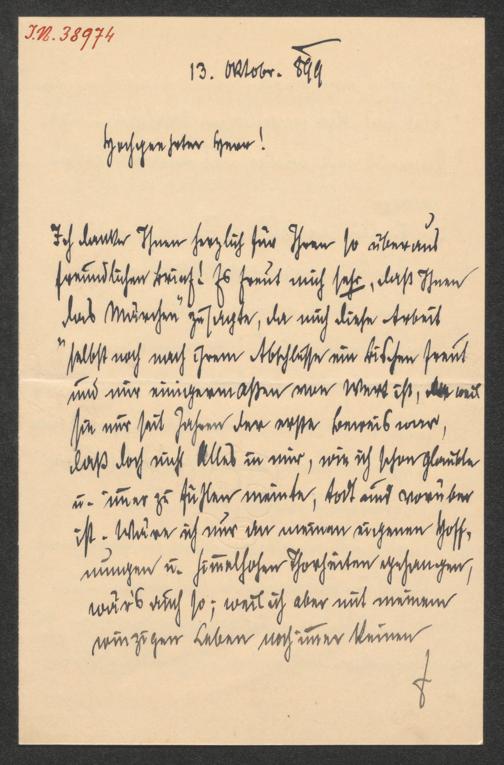 I.N. 38974
13. Oktobr. 899
Hochgeehrter Herr!
Ich danke Ihnen herzlich für Ihren so überaus
freundlichen Brief! Es freut mich sehr, daß Ihnen
"das Märchen" zusagte, da mich diese Arbeit
selbst noch nach ihrem Abschlusse ein bischen freut
und mir einigermaßen von Wert ist, weil
sie mir seit Jahren der erste Beweis war,
daß doch nicht Alles in mir, wie ich schon glaubte
u. immer zu fühlen meinte, todt und vorüber
ist. Wäre ich nur an meinen eigenen Hoff-
nungen u. himmelhohen Thorheiten gehangen,
wär's auch so; weil ich aber mit meinem
winzigen Leben noch immer keinen